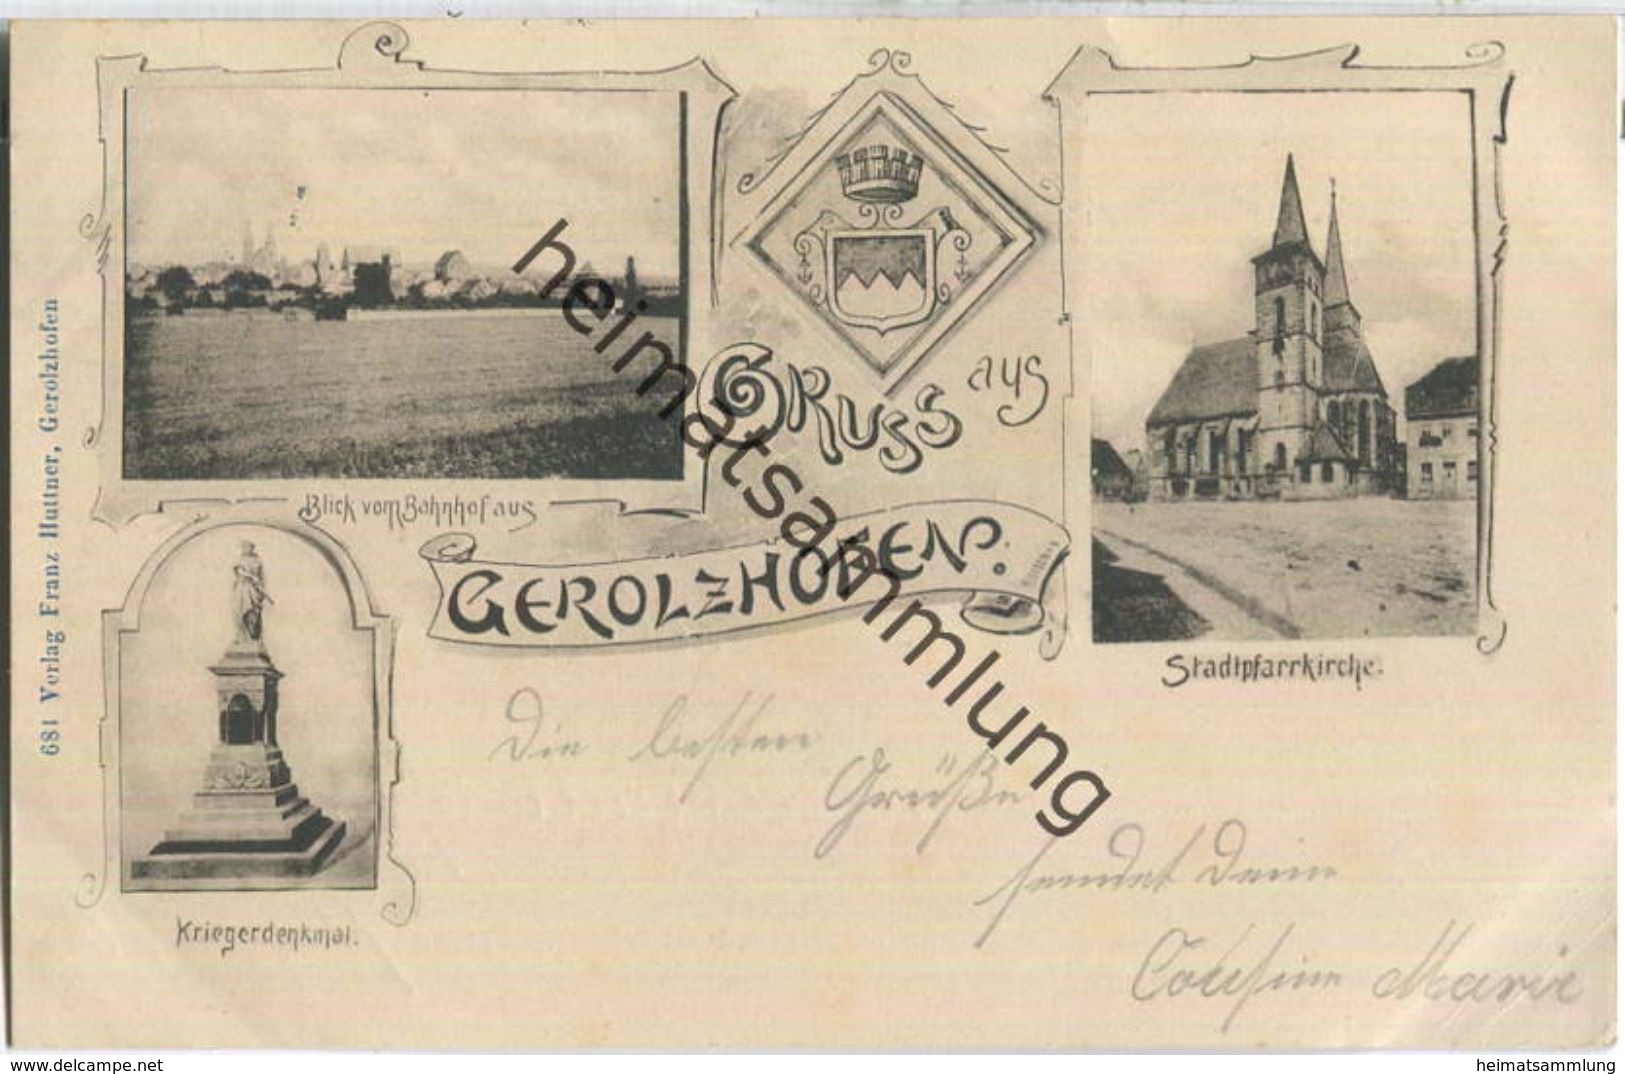 Gruss aus
Gerolzhofen.
Blick vom Bahnhof aus
Stadtpfarrkirche.
Kriegerdenkmal.
681 Verlag Franz Huttner, Gerolzhofen
Die besten
Grüße
sendet Deine
Cousine Marie
heimatsammlung
www.delcampe.net
heimatsammlung